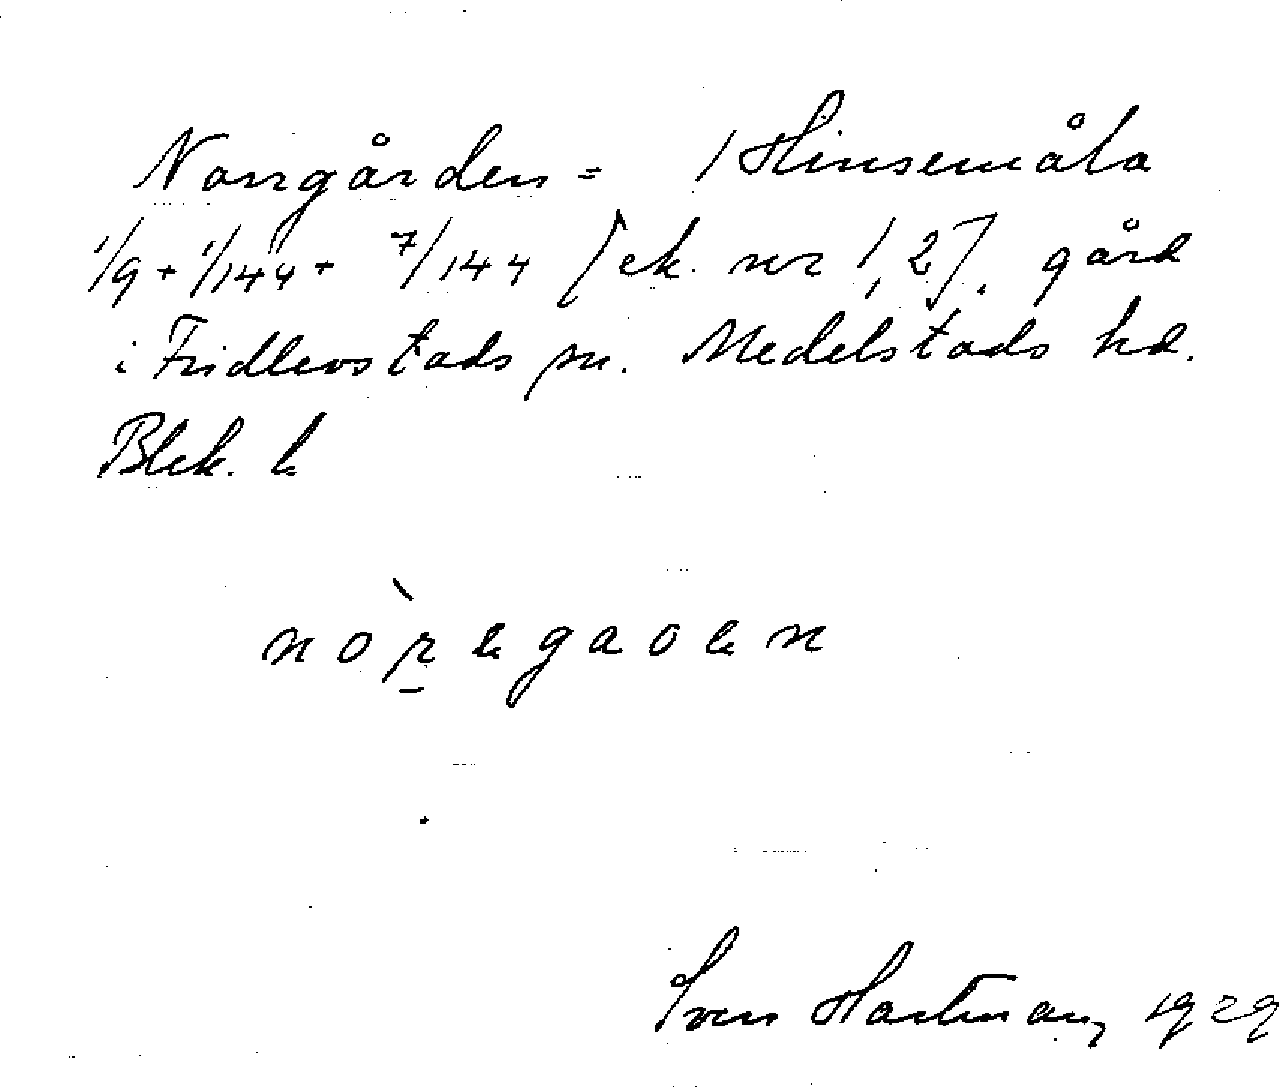 Norrgården = 1 Hinsemåla
1/9 + 1/144 + 7/144 [ek. nr 1, 2]. gård
i Fridlevstads sn. Medelstads hd.
Blek. l.
nòr̠egaoen
Sven Hartman, 1929